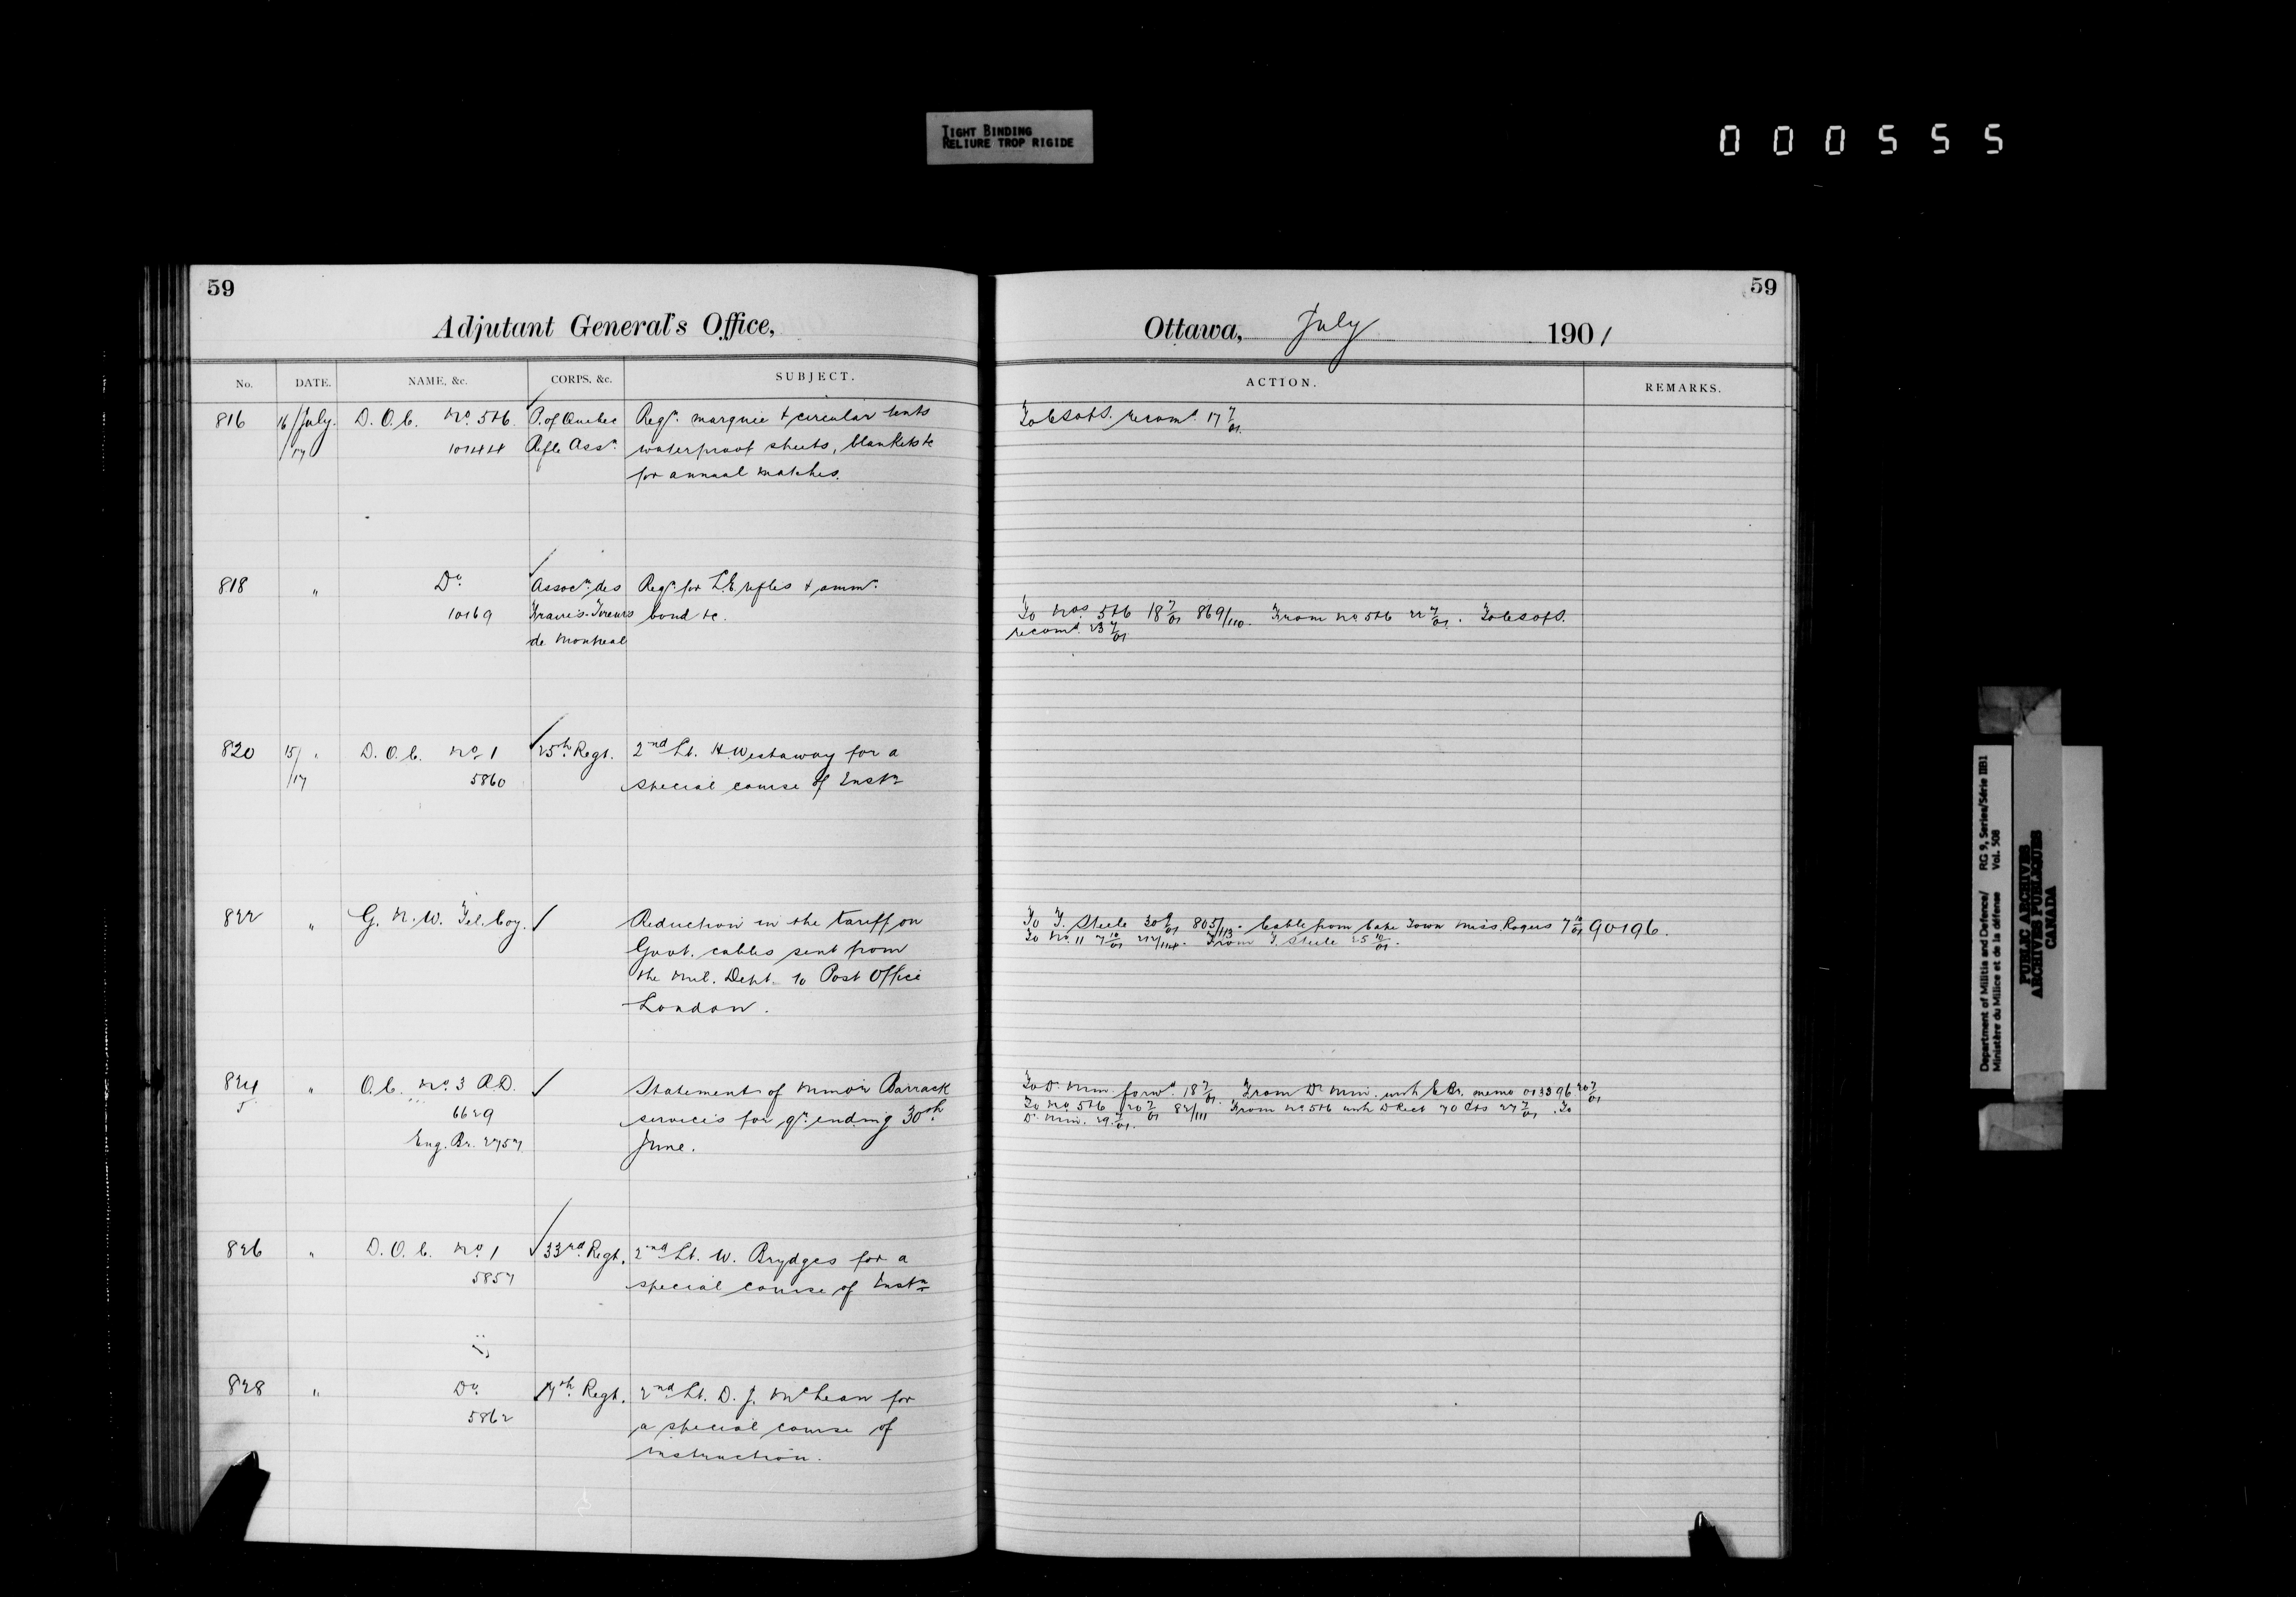 TIGHT BINDING
RELIURE TROP RIGIDE
000555
59
Adjutant General's Office,
No. DATE. NAME, &c. CORPS, &c. SUBJECT.
816 16/July. D.O.C. No. 5&6 P. of Quebec Reqn. marquee & circular tents
/17 101444 Rifle Assn. waterproof sheets, blankets &c
for annual matches.
818 " Do. Assocn. des Reqn. for L.E. rifles & ammn.
10169 Francs-Tireurs bond &c.
de Montreal
820 15/ " D.O.C. No. 1 25th Regt. 2nd Lt. H. Westaway for a
/17 5860 special course of Instn
822 " G.N.W. Tel. Coy. Reduction in the tariff on
Govt. cables sent from
the Mil. Dept. to Post Office
London.
824 " O.C. No. 3 R.D. Statement of minor Barrack
5 6629 services for qr. ending 30th
Eng. Br. 2757 June.
826 " D.O.C. No. 1 33rd Regt. 2nd Lt. W. Brydges for a
5857 special course of Instn
828 " Do. 7th Regt. 2nd Lt. D. J. McLean for
5862 a special course of
instruction.
59
Ottawa, July 1901
ACTION. REMARKS.
To C.S. of S. recomd. 17 7/01.
To Nos. 5&6 18 7/01 869/110. From No 5&6 22 7/01. To C.S. of S.
recomd. 23 7/01
To T. Steele 30 9/01 805/113. Cable from Cape Town Miss Rogers 7 10/01 90196.
To No. 11 7 10/01 212/114. From T. Steele 25 10/01.
To D. Min. forwd. 18 7/01. From D. Min. with E.Br. memo 013396 20 7/01
To No. 5&6 20 7/01 82/111 From No 5&6 with D Rect 70 Cts 27 7/01. To
D. Min. 29 7/01.
Department of Militia and Defence/ RG 9, Series/Série IIB1
Ministère du Milice et de la défense Vol. 508
PUBLIC ARCHIVES
ARCHIVES PUBLIQUES
CANADA